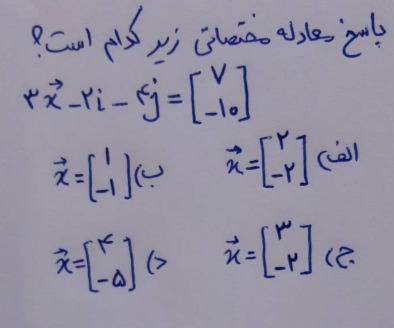 پاسخ معادله مختصاتی زیر کدام است؟
۳x⃗ - ۲i - ۴j = [۷ -۱۰]
الف) x⃗ = [۲ -۲] ب) x⃗ = [۱ -۱]
ج) x⃗ = [۳ -۲] د) x⃗ = [۴ -۵]